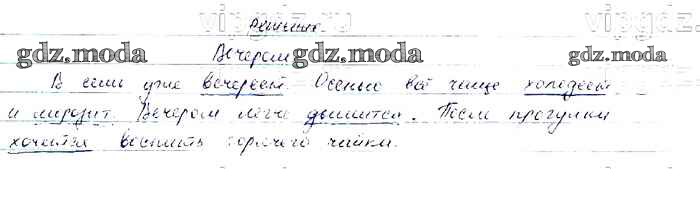 vipgdz.ru vipgdz.
Решение.
gdz.moda Вечером gdz.moda gdz.moda
В семь уже вечереет. Осенью всё чаще холодает
и морозит. Вечером легче дышится. После прогулки
хочется выпить горячего чайку.